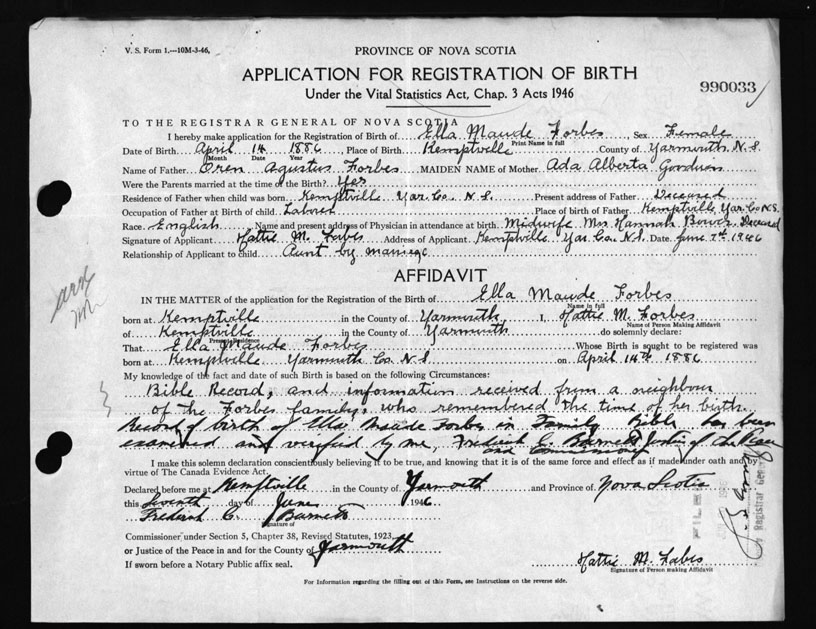 V. S. Form 1.—10M-3-46.
PROVINCE OF NOVA SCOTIA
APPLICATION FOR REGISTRATION OF BIRTH
990033
Under the Vital Statistics Act, Chap. 3 Acts 1946
TO THE REGISTRAR GENERAL OF NOVA SCOTIA
I hereby make application for the Registration of Birth of Ella Maude Forbes, Sex Female
Print Name in full
Date of Birth April 14 1886, Place of Birth Kemptville County of Yarmouth N. S.
Month Date Year
Name of Father Oren Agustus Forbes MAIDEN NAME of Mother Ada Alberta Goodwin
Were the Parents married at the time of the Birth? Yes
Residence of Father when child was born Kemptville Yar. Co. N. S. Present address of Father Deceased
Occupation of Father at Birth of child Laborer Place of birth of Father Kemptville Yar. Co N.S.
Race English Name and present address of Physician in attendance at birth Midwife Mrs Hannah Deceased
Signature of Applicant Hattie M. Forbes Address of Applicant Kemptville Yar. Co. N.S. Date June 7th 1946
Relationship of Applicant to child Aunt by marriage
AFFIDAVIT
IN THE MATTER of the application for the Registration of the Birth of Ella Maude Forbes
Name in full
born at Kemptville in the County of Yarmouth, I, Hattie M. Forbes
Name of Person Making Affidavit
of Kemptville in the County of Yarmouth do solemnly declare:
Present Residence
That Ella Maude Forbes Whose Birth is sought to be registered was
born at Kemptville Yarmouth Co. N. S. on April 14th 1886
My knowledge of the fact and date of such Birth is based on the following Circumstances:
Bible Record, and information received from a neighbour
of the Forbes family, who remembered the time of her birth.
Record of birth of Ella Maude Forbes in Family Bible has been
examined and verified by me, Frederick C. Barnett Justice of the Peace
and Commissioner
I make this solemn declaration conscientiously believing it to be true, and knowing that it is of the same force and effect as if made under oath and by
virtue of The Canada Evidence Act.
Declared before me at Kemptville in the County of Yarmouth and Province of Nova Scotia
this Seventh day of June 1946
Frederick C. Barnett
Signature of
Commissioner under Section 5, Chapter 38, Revised Statutes, 1923
or Justice of the Peace in and for the County of Yarmouth
If sworn before a Notary Public affix seal.
Hattie M. Forbes
Signature of Person making Affidavit
For Information regarding the filling out of this Form, see Instructions on the reverse side.